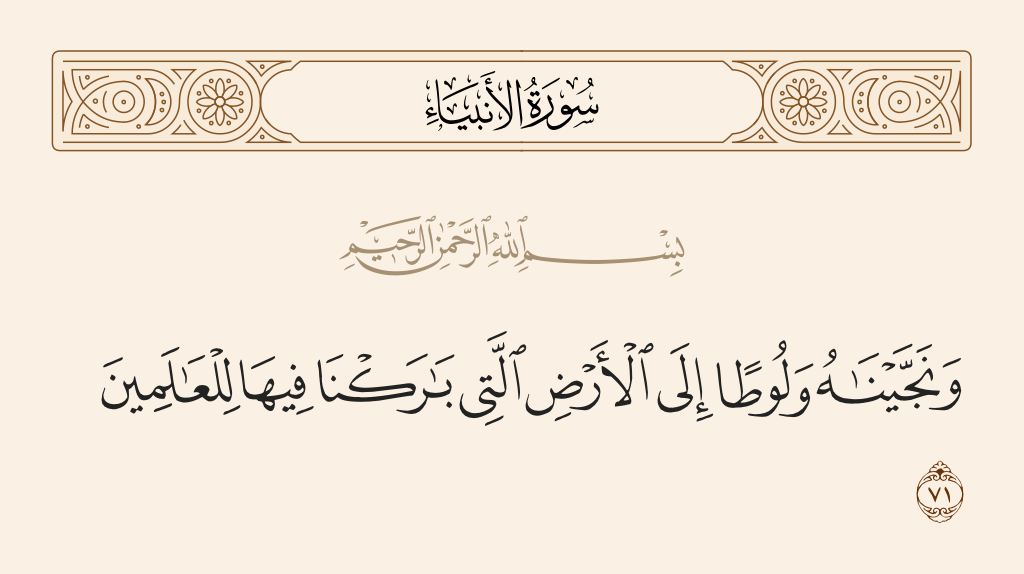 سُورَةُ الأَنبِيَاءِ
بِسْمِ ٱللَّهِ ٱلرَّحْمَٰنِ ٱلرَّحِيمِ
وَنَجَّيْنَٰهُ وَلُوطًا إِلَى ٱلْأَرْضِ ٱلَّتِى بَٰرَكْنَا فِيهَا لِلْعَٰلَمِينَ
٧١